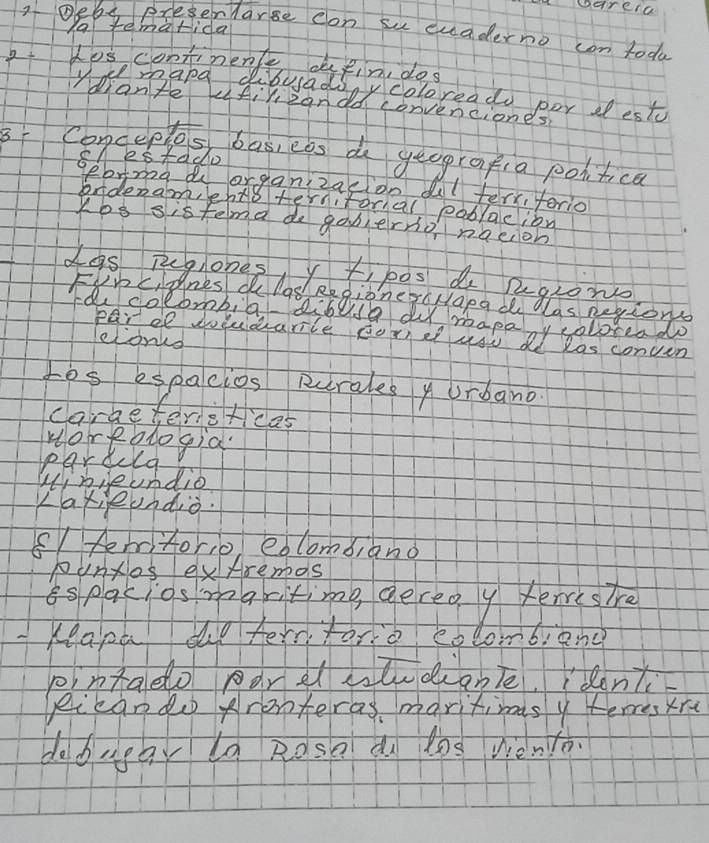 García
1- Debe presentarse con su cuaderno con toda
la tematica
2- Los continente definidos
y el mapa dibujado y coloreado por el estu
diante utilizando convenciones.
3- Conceptos basicos de geografia politica
El estado
Forma de organización del territorio
ordenamiento territorial, población
Los sistema de gobierno, nacion
Las regiones y tipos de regiones
Funciones de las Regiones (Mapa de las regiones
de colombia - dibuja del mapa y coloreado
por el estudiante con el uso de las conven
ciones
Los espacios Rurales y Urbano.
caracteristicas
Morfologia.
parcela
Minifundio
Latifundio.
El territorio colombiano
puntos extremos
Espacios maritimo, aereo y terrestre
- Mapa del territorio colombiano
pintado por el estudiante, identi-
ficando fronteras, maritimas y terrestre
debugar la Rosa de los viento.